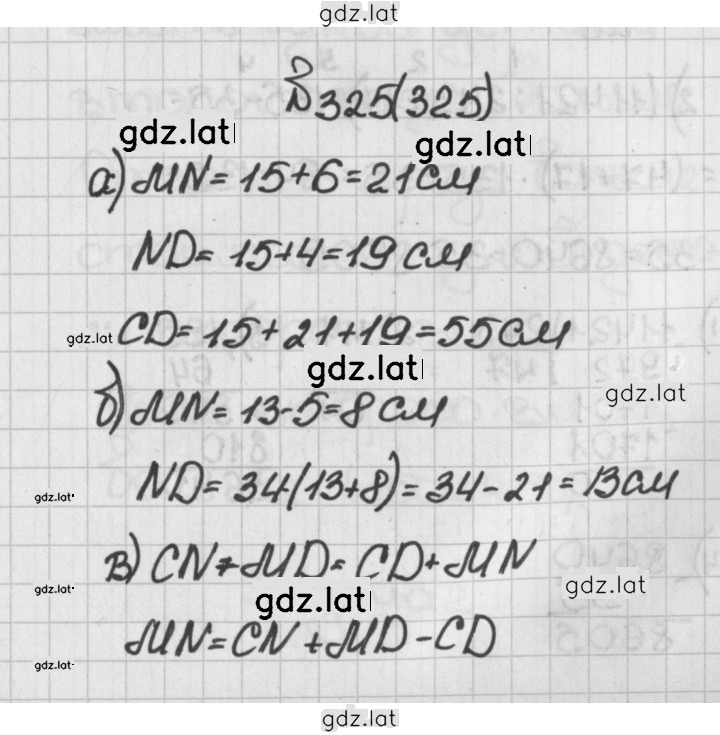 gdz.lat
№325(325)
gdz.lat gdz.lat
а) MN = 15+6=21см
ND= 15+4=19 см
gdz.lat CD= 15+21+19=55см
gdz.lat gdz.lat
б) MN= 13-5=8 см
gdz.lat ND= 34(13+8)=34-21=13см
в) CN+MD= CD+MN
gdz.lat gdz.lat gdz.lat
MN=CN+MD-CD
gdz.lat
gdz.lat